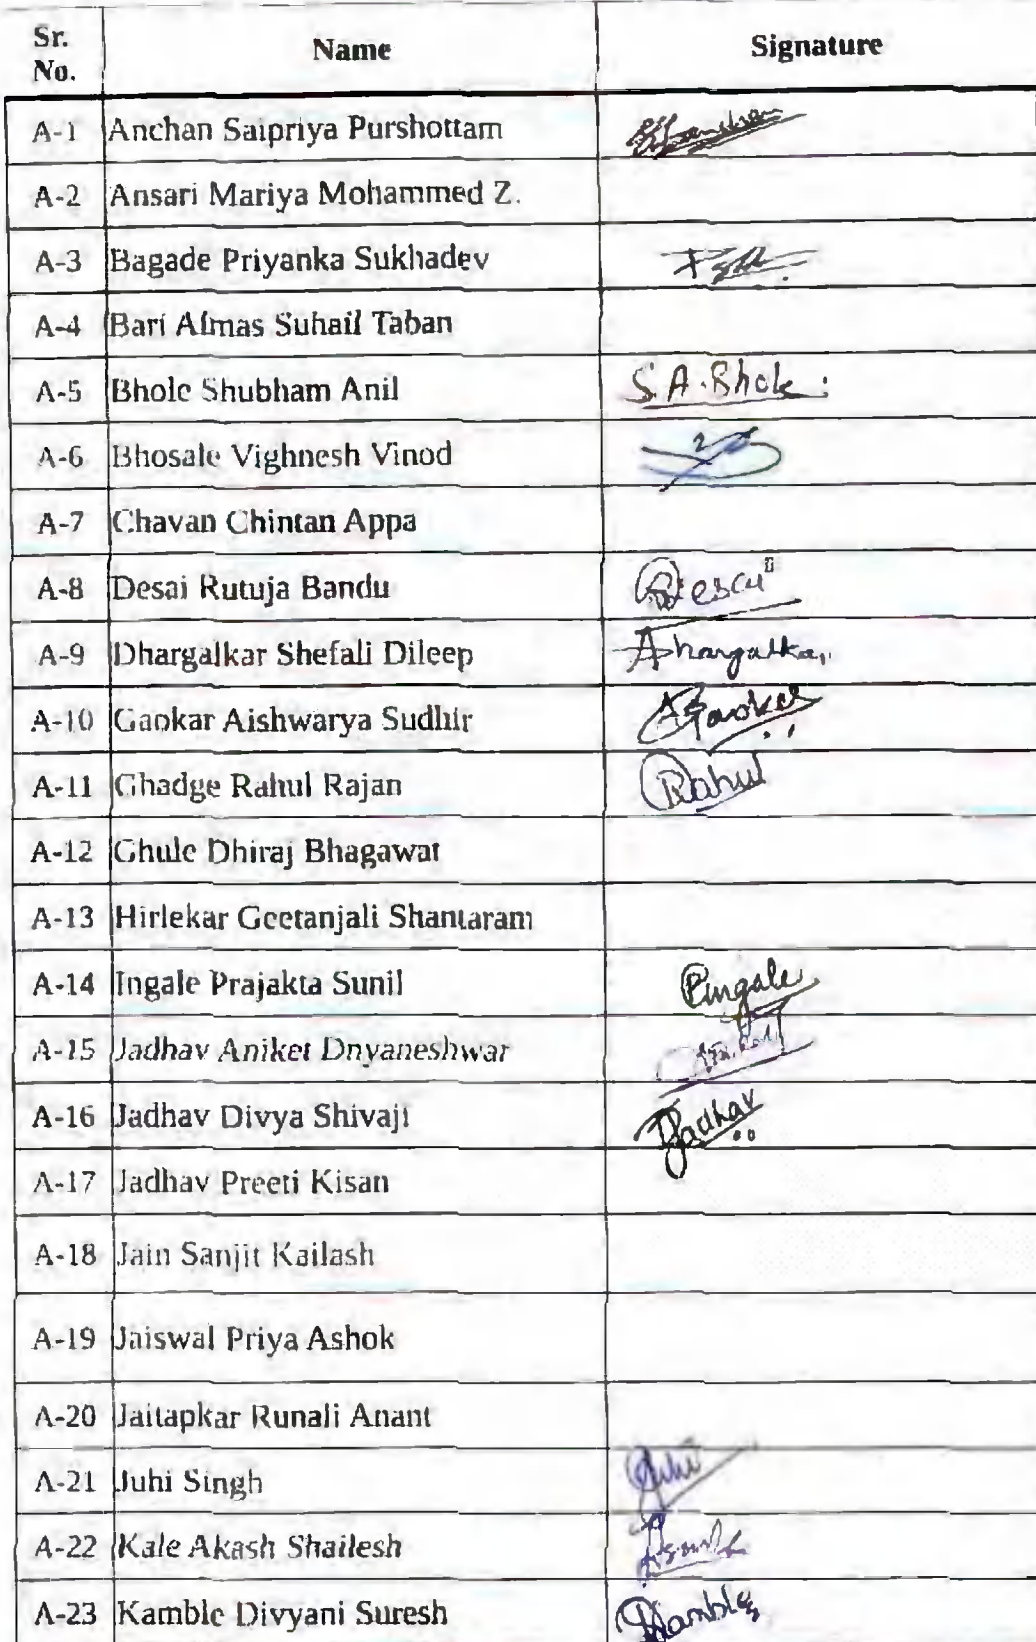 Sr. No. Name Signature
A-1 Anchan Saipriya Purshottam
A-2 Ansari Mariya Mohammed Z.
A-3 Bagade Priyanka Sukhadev
A-4 Bari Almas Suhail Taban
A-5 Bhole Shubham Anil S.A.Bhole
A-6 Bhosale Vighnesh Vinod
A-7 Chavan Chintan Appa
A-8 Desai Rutuja Bandu
A-9 Dhargalkar Shefali Dileep Dhargalkar
A-10 Gaokar Aishwarya Sudhir AGaokar
A-11 Ghadge Rahul Rajan Rahul
A-12 Ghule Dhiraj Bhagawat
A-13 Hirlekar Geetanjali Shantaram
A-14 Ingale Prajakta Sunil Pingale
A-15 Jadhav Aniket Dnyaneshwar
A-16 Jadhav Divya Shivaji DJadhav
A-17 Jadhav Preeti Kisan
A-18 Jain Sanjit Kailash
A-19 Jaiswal Priya Ashok
A-20 Jaitapkar Runali Anant
A-21 Juhi Singh Juhi
A-22 Kale Akash Shailesh
A-23 Kamble Divyani Suresh DKamble